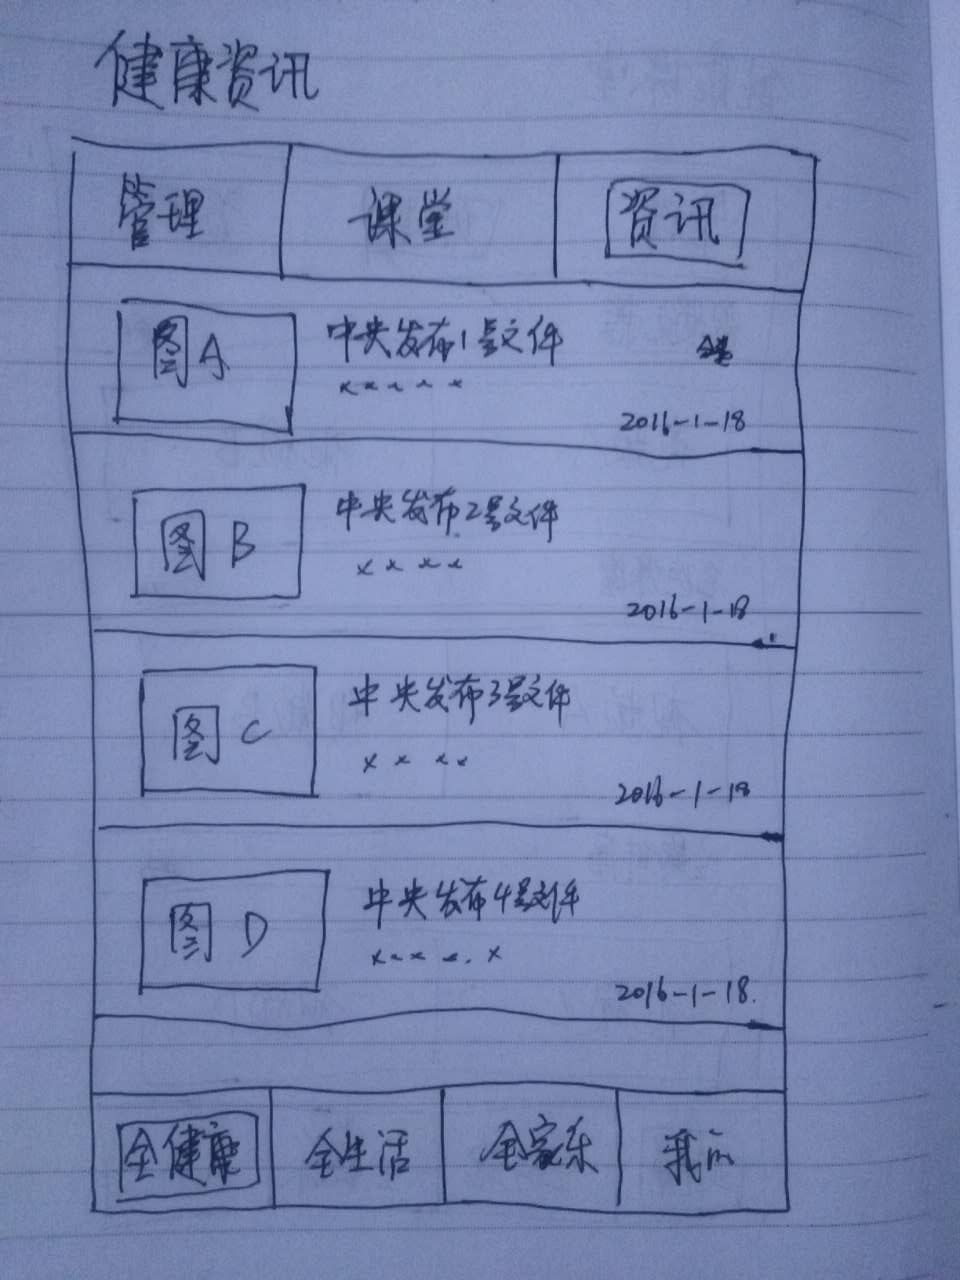 健康资讯
管理 课堂 资讯
图A 中央发布1号文件
×××××
2016-1-18
图B 中央发布2号文件
××××
2016-1-18
图C 中央发布3号文件
××××
2016-1-18
图D 中央发布4号文件
×××××
2016-1-18.
全健康 全生活 全家乐 我的